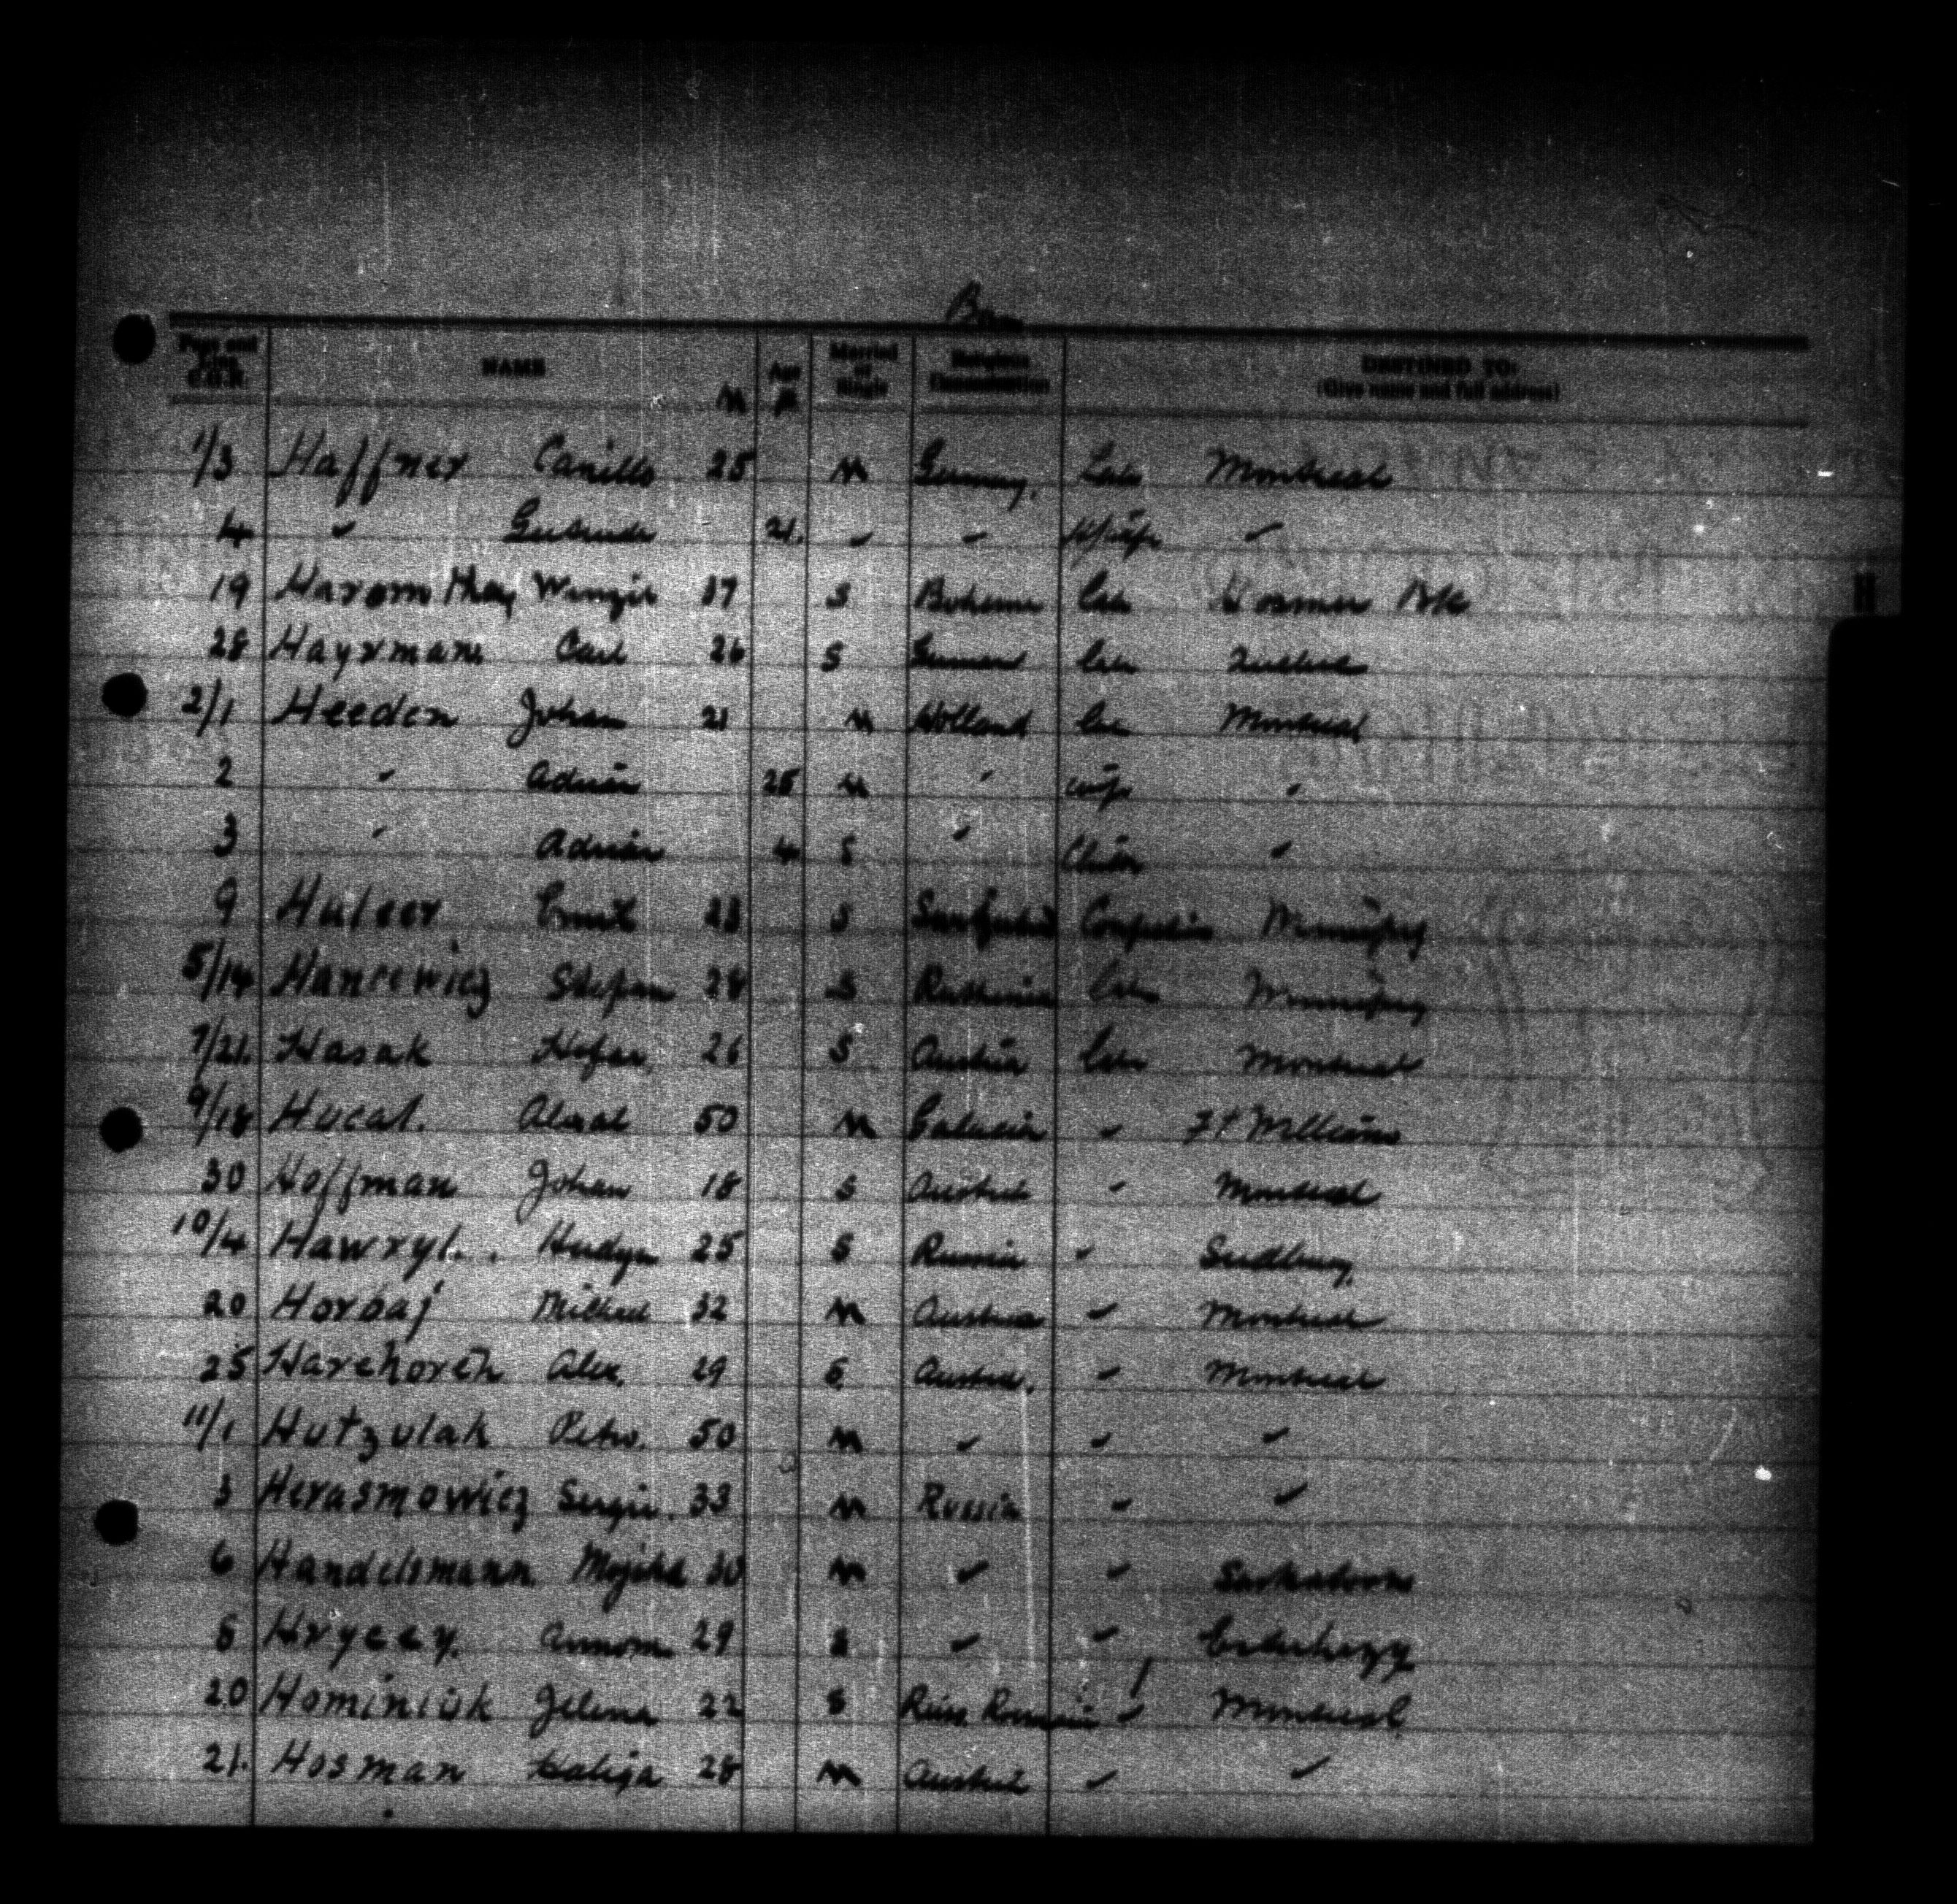 Born
Page and Line C.O.R. NAME M Age F Married or Single Religious Denomination DESTINED TO: (Give name and full address)
H
1/3 Haffner Camillo 25 M Germany, Lab Montreal
4 " Gertrude 21. " " Wife "
19 Wenzil 17 S Boheme Lab Hosmer BC
28 Hayrmann Carl 26 S Lab Quebec
2/1 Heeden Johan 21 M Holland Lab Montreal
2 " Adrian 25 M " wife "
3 " Adrian 4 S " Child "
9 Hulser Ernst 23 S Winnipeg
5/14 Hancewicz Stefan 28 S Ruthenia Lab Winnipeg
7/21. Hasak 26 S Austria Lab Montreal
9/18 Hucal. 50 M Galicia " Ft William
30 Hoffman Johan 18 S Austria " Montreal
10/4 Hawryl.. 25 S Russia " Sudbury,
20 Horbaj Michael 32 M Austria " Montreal
25 Alex. 29 S. Austria. " Montreal
11/1 Hutzulak Petro. 50 M " " "
3 Herasmowicz Sergie. 33 M Russia " "
6 Handelsmann 30 M " " Saskatoon
8 29 S " " Esterhazy
20 Hominiuk Jelena 22 S Russ. " Montreal
21. Hosman 28 M Austria " "